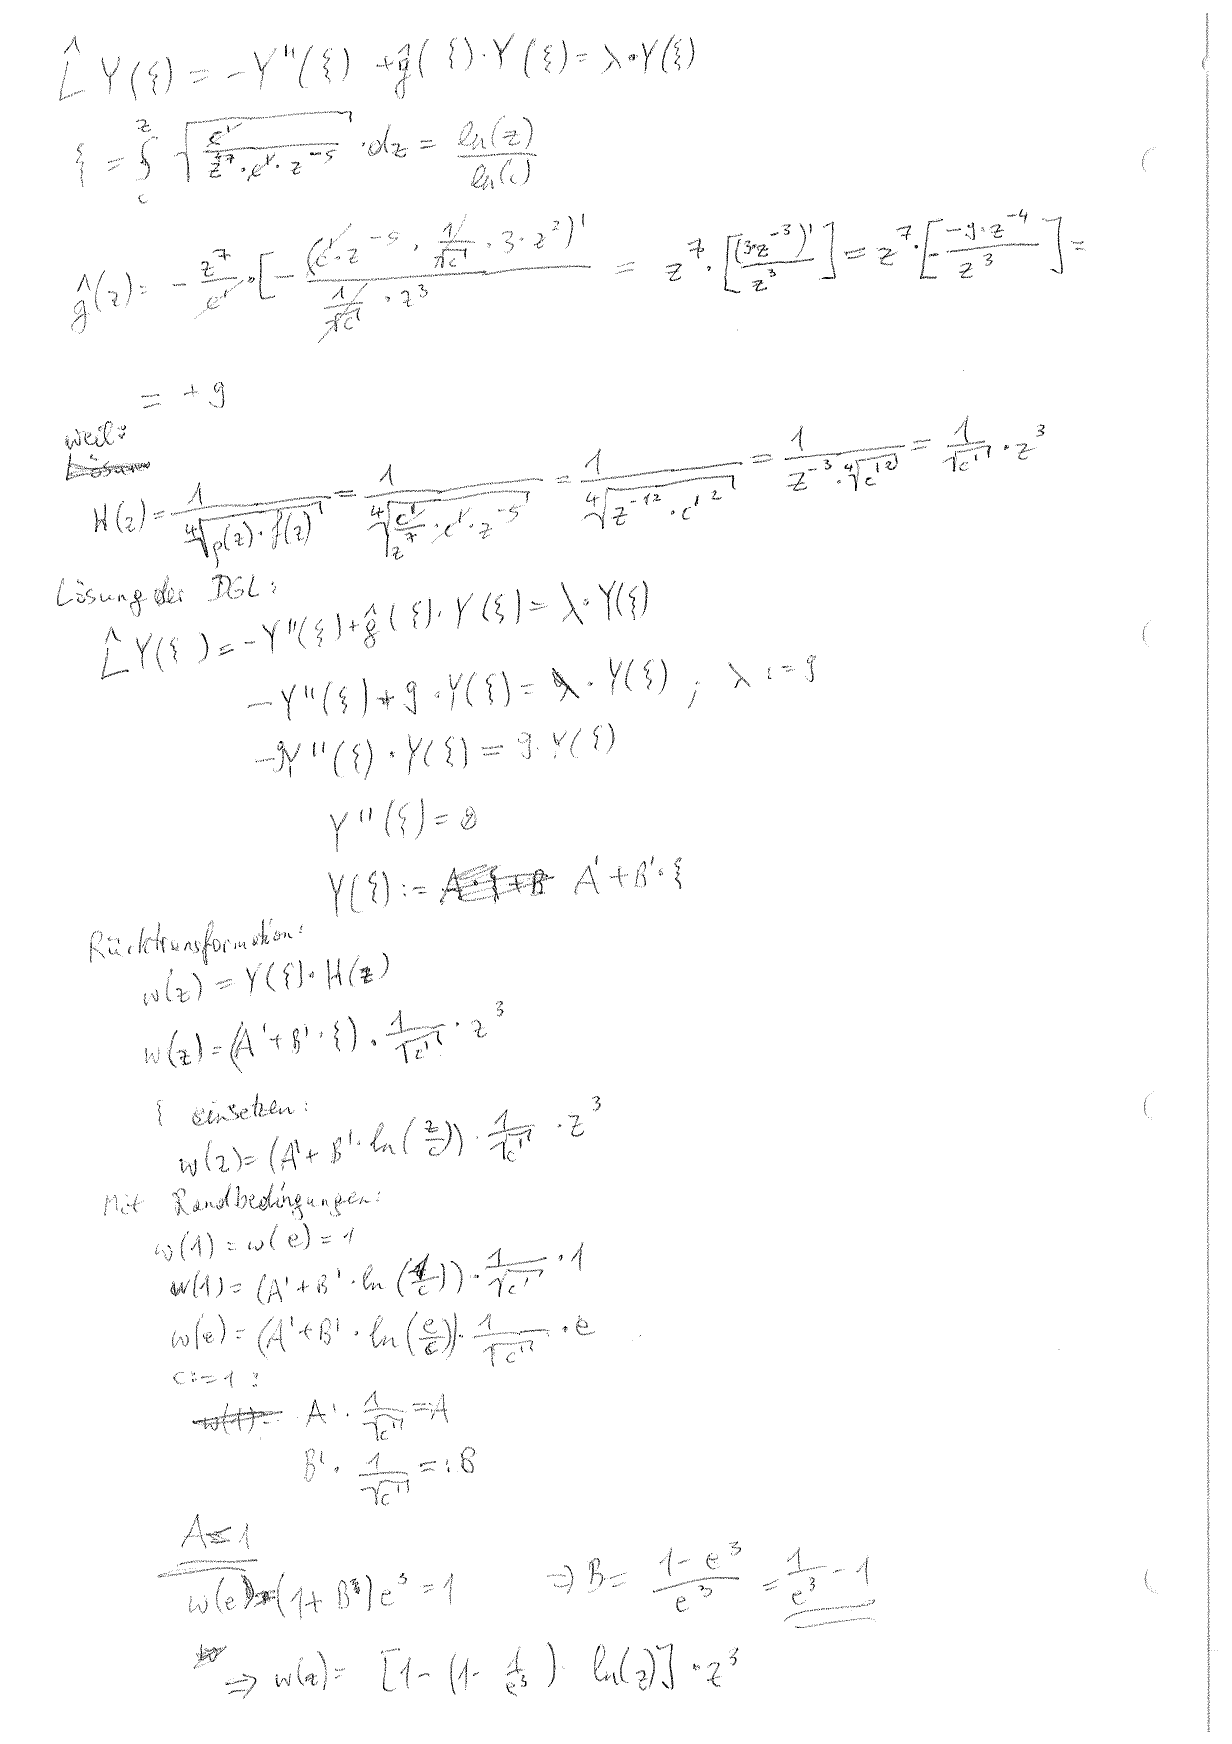 L̂ Y(ξ) = -Y''(ξ) + ĝ(ξ)·Y(ξ) = λ·Y(ξ)
ξ = ∫_c^z √(c'/(z^7·c'·z^-5)) ·dz = ln(z)/ln(c)
ĝ(z) = - z^7/c' · [- (c'·z^-5 · 1/√c' · 3·z^2)' / (1/√c' · z^3)] = z^7·[(3·z^-3)'/z^3] = z^7·[-9·z^-4/z^3] =
= +9
weil:
H(z) = 1/∜(p(z)·f(z)) = 1/∜(c'/z^7·c'·z^-5) = 1/∜(z^-12·c'^2) = 1/(z^-3·∜(c'^2)) = 1/√c' · z^3
Lösung der DGL:
L̂ Y(ξ) = -Y''(ξ) + ĝ(ξ)·Y(ξ) = λ·Y(ξ)
-Y''(ξ) + 9·Y(ξ) = λ·Y(ξ) ; λ := 9
-9Y''(ξ)·Y(ξ) = 9·Y(ξ)
Y''(ξ) = 0
Y(ξ) := A·ξ+B A'+B'·ξ
Rücktransformation:
w(z) = Y(ξ)·H(z)
w(z) = (A'+B'·ξ)·1/√c' · z^3
ξ einsetzen:
w(z) = (A'+B'·ln(z/c))·1/√c' · z^3
Mit Randbedingungen:
w(1) = w(e) = 1
w(1) = (A'+B'·ln(1/c))·1/√c' · 1
w(e) = (A'+B'·ln(e/c))·1/√c' · e
c:=1:
w(1)= A'·1/√c' =:A
B'·1/√c' =:B
A=1
w(e)=(1+B)e^3=1 ⇒ B= (1-e^3)/e^3 = 1/e^3 -1
⇒ w(z)= [1-(1-1/e^3)· ln(z)]·z^3